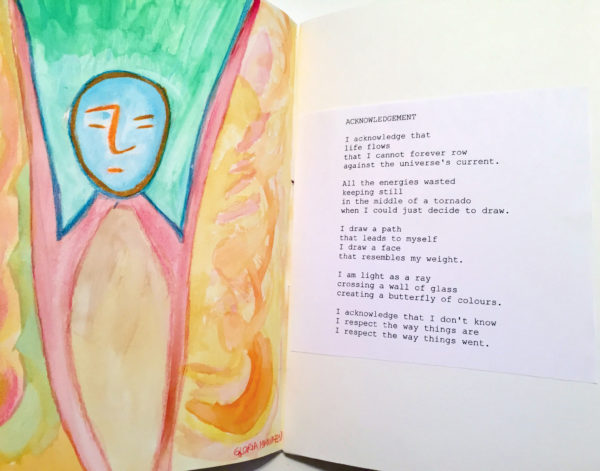 ACKNOWLEDGEMENT
I acknowledge that
life flows
that I cannot forever row
against the universe's current.
All the energies wasted
keeping still
in the middle of a tornado
when I could just decide to draw.
I draw a path
that leads to myself
I draw a face
that resembles my weight.
I am light as a ray
crossing a wall of glass
creating a butterfly of colours.
I acknowledge that I don't know
I respect the way things are
I respect the way things went.